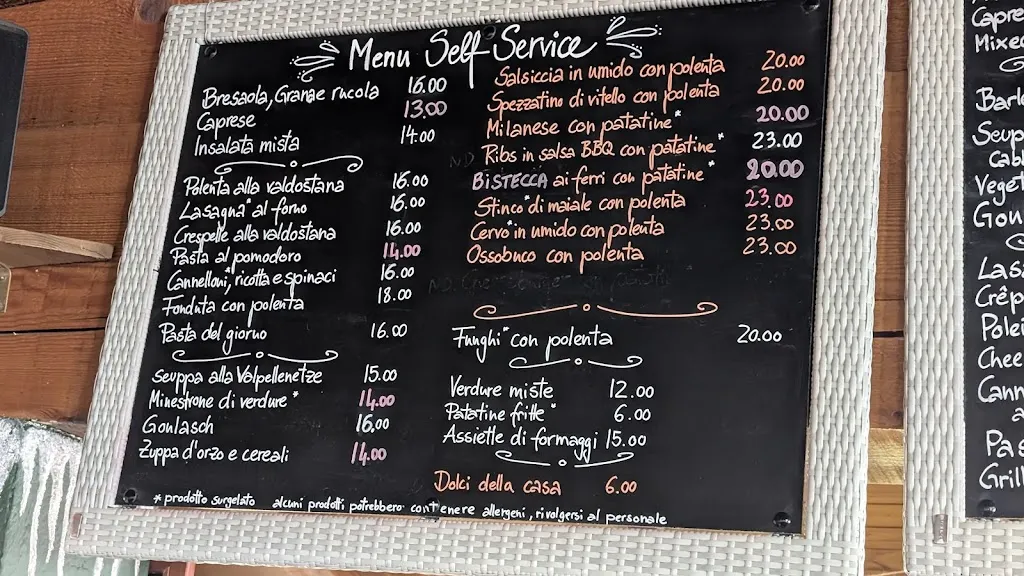 Menu Self Service
Bresaola, Grana e rucola 16.00
Caprese 13.00
Insalata mista 14.00
Polenta alla valdostana 16.00
Lasagna* al forno 16.00
Crespelle alla valdostana 16.00
Pasta al pomodoro 14.00
Cannelloni, ricotta e spinaci 16.00
Fonduta con polenta 18.00
Pasta del giorno 16.00
Seuppa alla Valpellenetze 15.00
Minestrone di verdure* 14.00
Goulasch 16,00
Zuppa d'orzo e cereali 14.00
Salsiccia in umido con polenta 20.00
Spezzatino di vitello con polenta 20.00
Milanese con patatine* 20.00
N.D. Ribs in salsa BBQ con patatine* 23.00
BISTECCA ai ferri con patatine* 20.00
Stinco* di maiale con polenta 23.00
Cervo* in umido con polenta 23.00
Ossobuco con polenta 23.00
N.D.
Funghi* con polenta 20.00
Verdure miste 12.00
Patatine fritte* 6.00
Assiette di formaggi 15.00
Dolci della casa 6.00
* prodotto surgelato alcuni prodotti potrebbero contenere allergeni, rivolgersi al personale
Capre
Mixed
Barl
Seup
cab
Veget
Gou
Las
Crêp
Polen
Chee
Cann
a
Pas
Grill